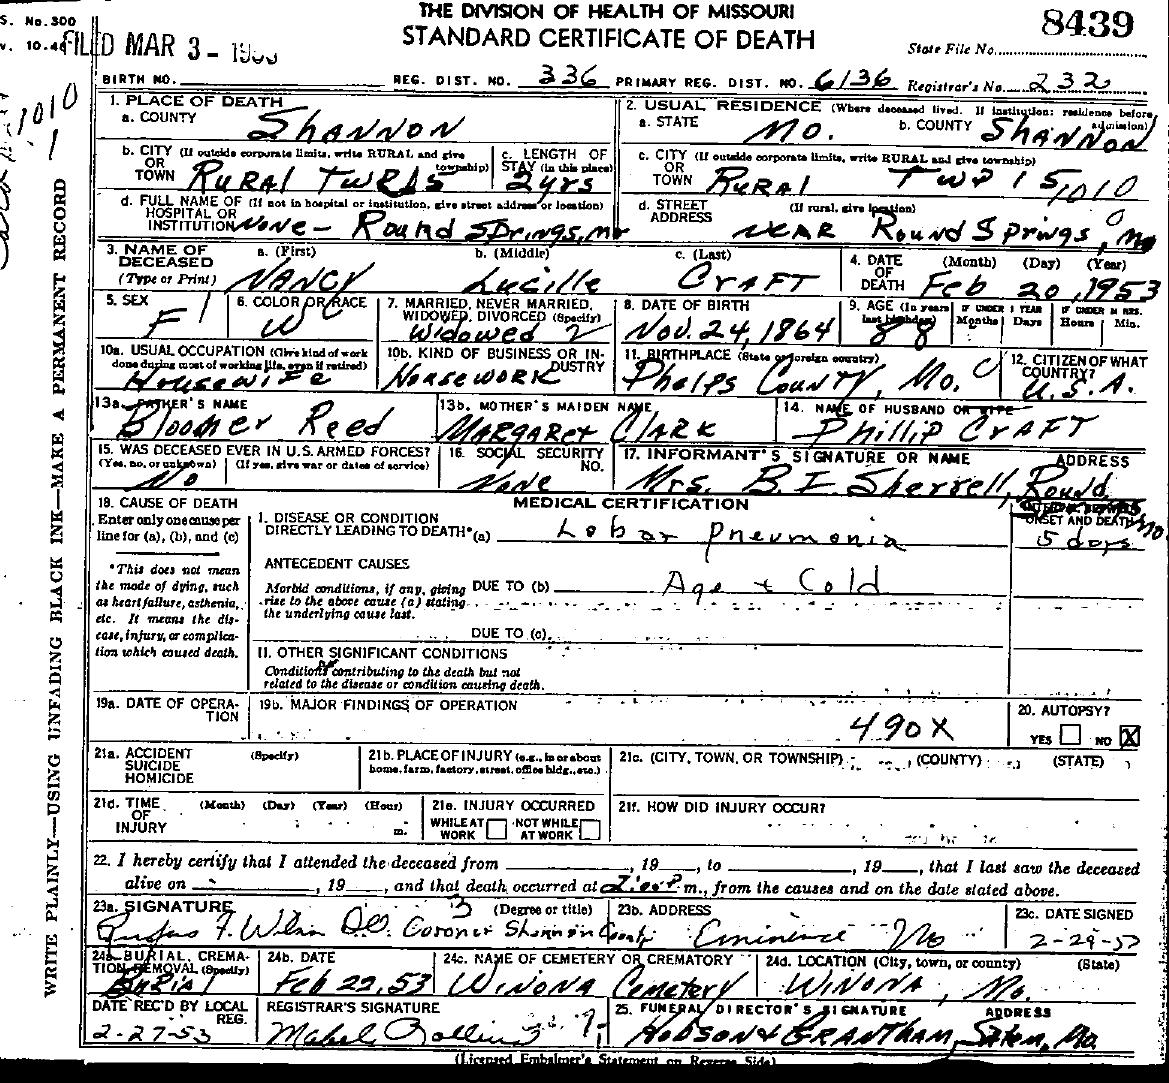 THE DIVISION OF HEALTH OF MISSOURI
STANDARD CERTIFICATE OF DEATH
8439
S. No. 300
v. 10.48
FILED MAR 3 - 1953
State File No.
BIRTH NO. REG. DIST. NO. 336 PRIMARY REG. DIST. NO. 6136 Registrar's No. 232
1010
1
WRITE PLAINLY—USING UNFADING BLACK INK—MAKE A PERMANENT RECORD
1. PLACE OF DEATH
a. COUNTY SHANNON
2. USUAL RESIDENCE (Where deceased lived. If institution: residence before admission)
a. STATE MO. b. COUNTY SHANNON
b. CITY (If outside corporate limits, write RURAL and give township) OR TOWN RURAL TWP 15
c. LENGTH OF STAY (in this place) 2 yrs
c. CITY (If outside corporate limits, write RURAL and give township) OR TOWN RURAL TWP 15 1010
d. FULL NAME OF (If not in hospital or institution, give street address or location) HOSPITAL OR INSTITUTION NONE - Round Springs, Mo
d. STREET ADDRESS (If rural, give location) NEAR Round Springs, Mo
0
3. NAME OF DECEASED (Type or Print)
a. (First) NANCY b. (Middle) Lucille c. (Last) CRAFT
4. DATE OF DEATH (Month) (Day) (Year) Feb 20, 1953
5. SEX F 1
6. COLOR OR RACE W
7. MARRIED, NEVER MARRIED, WIDOWED, DIVORCED (Specify) Widowed 2
8. DATE OF BIRTH Nov. 24, 1864
9. AGE (In years last birthday) 88 IF UNDER 1 YEAR Months Days IF UNDER 24 HRS. Hours Min.
10a. USUAL OCCUPATION (Give kind of work done during most of working life, even if retired) Housewife
10b. KIND OF BUSINESS OR INDUSTRY Housework
11. BIRTHPLACE (State or foreign country) Phelps County, Mo.
12. CITIZEN OF WHAT COUNTRY? U.S.A.
13a. FATHER'S NAME Bloomer Reed
13b. MOTHER'S MAIDEN NAME MARGARET CLARK
14. NAME OF HUSBAND OR WIFE Phillip CRAFT
15. WAS DECEASED EVER IN U.S. ARMED FORCES? (Yes, no, or unknown) (If yes, give war or dates of service) No
16. SOCIAL SECURITY NO. None
17. INFORMANT'S SIGNATURE OR NAME ADDRESS
Mrs. B. I. Sherrell, Round
18. CAUSE OF DEATH
Enter only one cause per line for (a), (b), and (c)
*This does not mean the mode of dying, such as heart failure, asthenia, etc. It means the disease, injury, or complication which caused death.
MEDICAL CERTIFICATION
I. DISEASE OR CONDITION DIRECTLY LEADING TO DEATH* (a) Lobar Pneumonia
INTERVAL BETWEEN ONSET AND DEATH 5 days
ANTECEDENT CAUSES
Morbid conditions, if any, giving rise to the above cause (a) stating the underlying cause last.
DUE TO (b) Age + Cold
DUE TO (c)
II. OTHER SIGNIFICANT CONDITIONS
Conditions contributing to the death but not related to the disease or condition causing death.
19a. DATE OF OPERATION
19b. MAJOR FINDINGS OF OPERATION
490X
20. AUTOPSY?
YES NO X
21a. ACCIDENT SUICIDE HOMICIDE (Specify)
21b. PLACE OF INJURY (e.g., in or about home, farm, factory, street, office bldg., etc.)
21c. (CITY, TOWN, OR TOWNSHIP) (COUNTY) (STATE)
21d. TIME OF INJURY (Month) (Day) (Year) (Hour) m.
21e. INJURY OCCURRED WHILE AT WORK NOT WHILE AT WORK
21f. HOW DID INJURY OCCUR?
22. I hereby certify that I attended the deceased from , 19 , to , 19 , that I last saw the deceased
alive on , 19 , and that death occurred at m., from the causes and on the date stated above.
23a. SIGNATURE (Degree or title)
Rufus F. D.O. 3 Coroner Shannon County
23b. ADDRESS Eminence Mo
23c. DATE SIGNED
24a. BURIAL, CREMATION, REMOVAL (Specify) Burial
24b. DATE Feb 22, 53
24c. NAME OF CEMETERY OR CREMATORY WINONA Cemetery
24d. LOCATION (City, town, or county) (State) WINONA, Mo.
DATE REC'D BY LOCAL REG. 2-27-53
REGISTRAR'S SIGNATURE Mabel
25. FUNERAL DIRECTOR'S SIGNATURE ADDRESS
Hobson & GRANTHAM, Salem, Mo.
(Licensed Embalmer's Statement on Reverse Side)